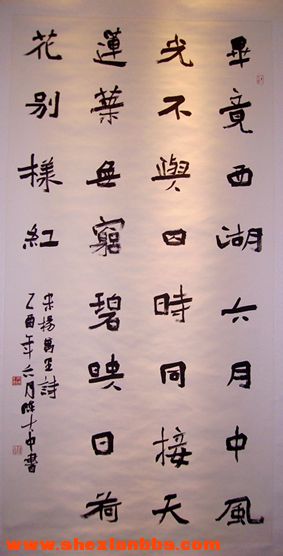 畢竟西湖六月中風
光不與四時同接天
蓮葉無窮碧映日荷
花别樣紅
宋楊萬里詩
乙酉年六月陈十中書
www.shexianbbs.com